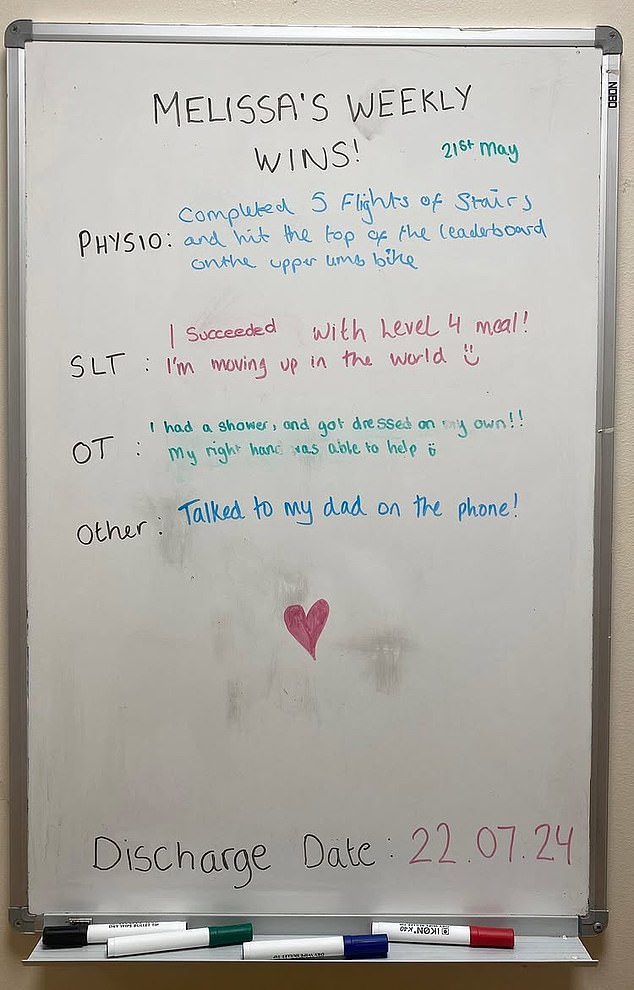 MELISSA'S WEEKLY
WINS!
21st May
PHYSIO:
Completed 5 Flights of Stairs
and hit the top of the leaderboard
on the upper limb bike
SLT :
I Succeeded with Level 4 meal!
I'm moving up in the world
OT :
I had a shower, and got dressed on my own!!
My right hand was able to help
Other :
Talked to my dad on the phone!
Discharge Date : 22.07.24
NOBO
IKON K40